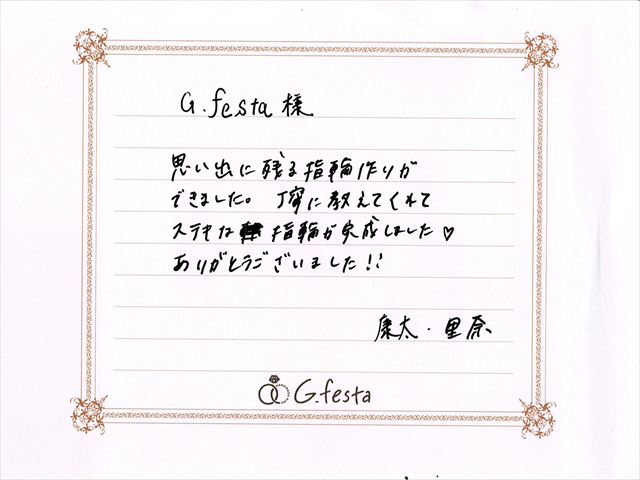 G.festa 様
思い出に残る指輪作りが
できました。丁寧に教えてくれて
ステキな 指輪が完成しました♡
ありがとうございました!!
康太・里奈
G.festa